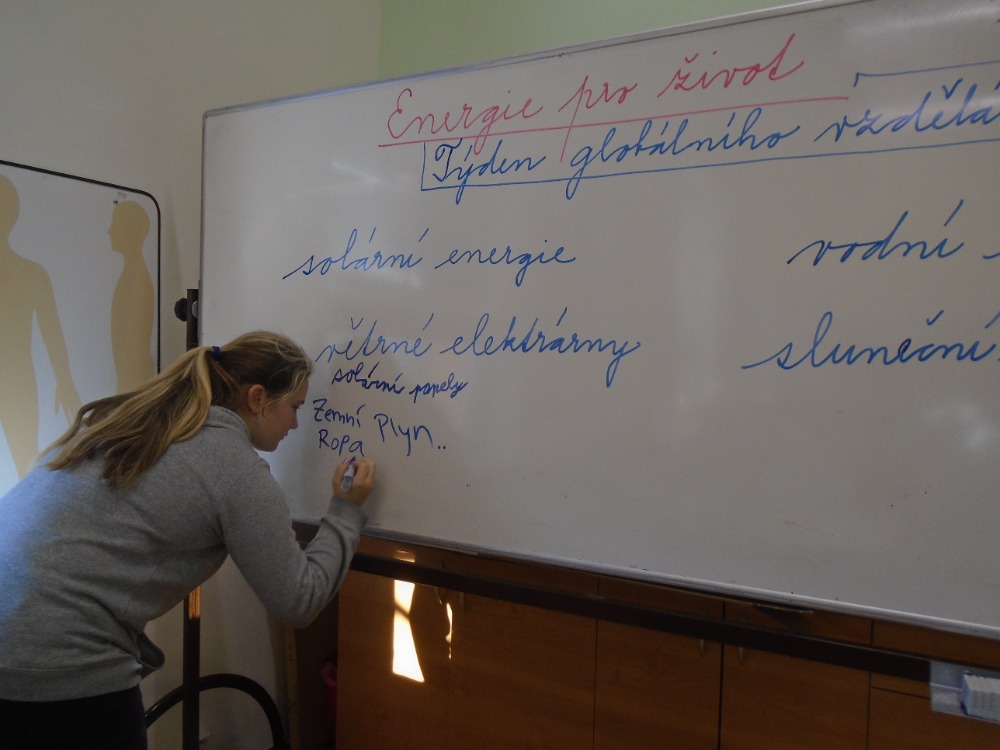 Energie pro život
Týden globálního vzdělá
solární energie
vodní
větrné elektrárny
sluneční
solární panely
Zemní Plyn..
Ropa